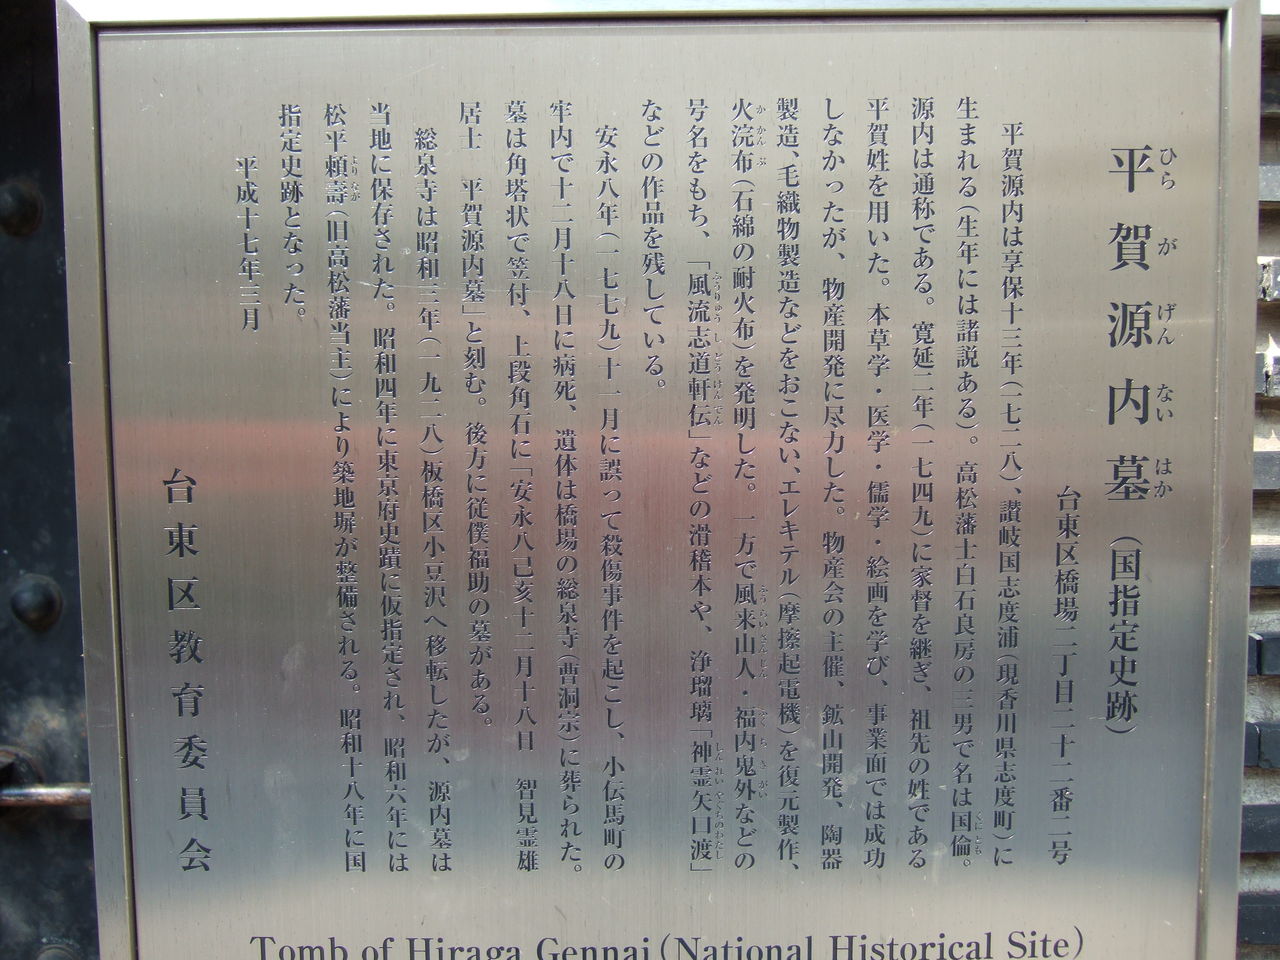 平賀源内墓（国指定史跡）
ひらがげんないはか
台東区橋場二丁目二十二番二号
平賀源内は享保十三年（一七二八）、讃岐国志度浦（現香川県志度町）に
生まれる（生年には諸説ある）。高松藩士白石良房の三男で名は国倫。
くにとも
源内は通称である。寛延二年（一七四九）に家督を継ぎ、祖先の姓である
平賀姓を用いた。本草学・医学・儒学・絵画を学び、事業面では成功
しなかったが、物産開発に尽力した。物産会の主催、鉱山開発、陶器
製造、毛織物製造などをおこない、エレキテル（摩擦起電機）を復元製作、
火浣布（石綿の耐火布）を発明した。一方で風来山人・福内鬼外などの
かかんぷ ふうらいさんじん ふくちきがい
号名をもち、「風流志道軒伝」などの滑稽本や、浄瑠璃「神霊矢口渡」
ふうりゅうしどうけんでん しんれいやぐちのわたし
などの作品を残している。
安永八年（一七七九）十一月に誤って殺傷事件を起こし、小伝馬町の
牢内で十二月十八日に病死、遺体は橋場の総泉寺（曹洞宗）に葬られた。
墓は角塔状で笠付、上段角石に「安永八己亥十二月十八日　智見霊雄
居士　平賀源内墓」と刻む。後方に従僕福助の墓がある。
総泉寺は昭和三年（一九二八）板橋区小豆沢へ移転したが、源内墓は
当地に保存された。昭和四年に東京府史蹟に仮指定され、昭和六年には
松平頼壽（旧高松藩当主）により築地塀が整備される。昭和十八年に国
よりなが
指定史跡となった。
平成十七年三月
台東区教育委員会
Tomb of Hiraga Gennai (National Historical Site)